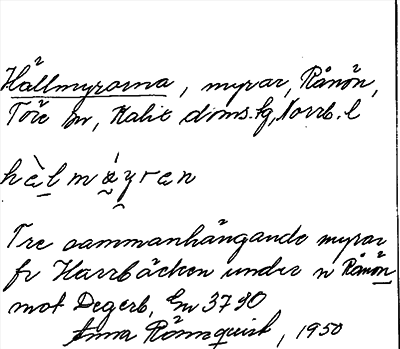 Hällmyrarna, myrar, Rånön,
Töre sn, Kalix doms.sg, Norrb. l
hä̀l mæ̀yran
Tre sammanhängande myrar
fr Harrbäcken under n Rånön
mot Degerb, Gn 3790
Anna Rönnquist, 1950